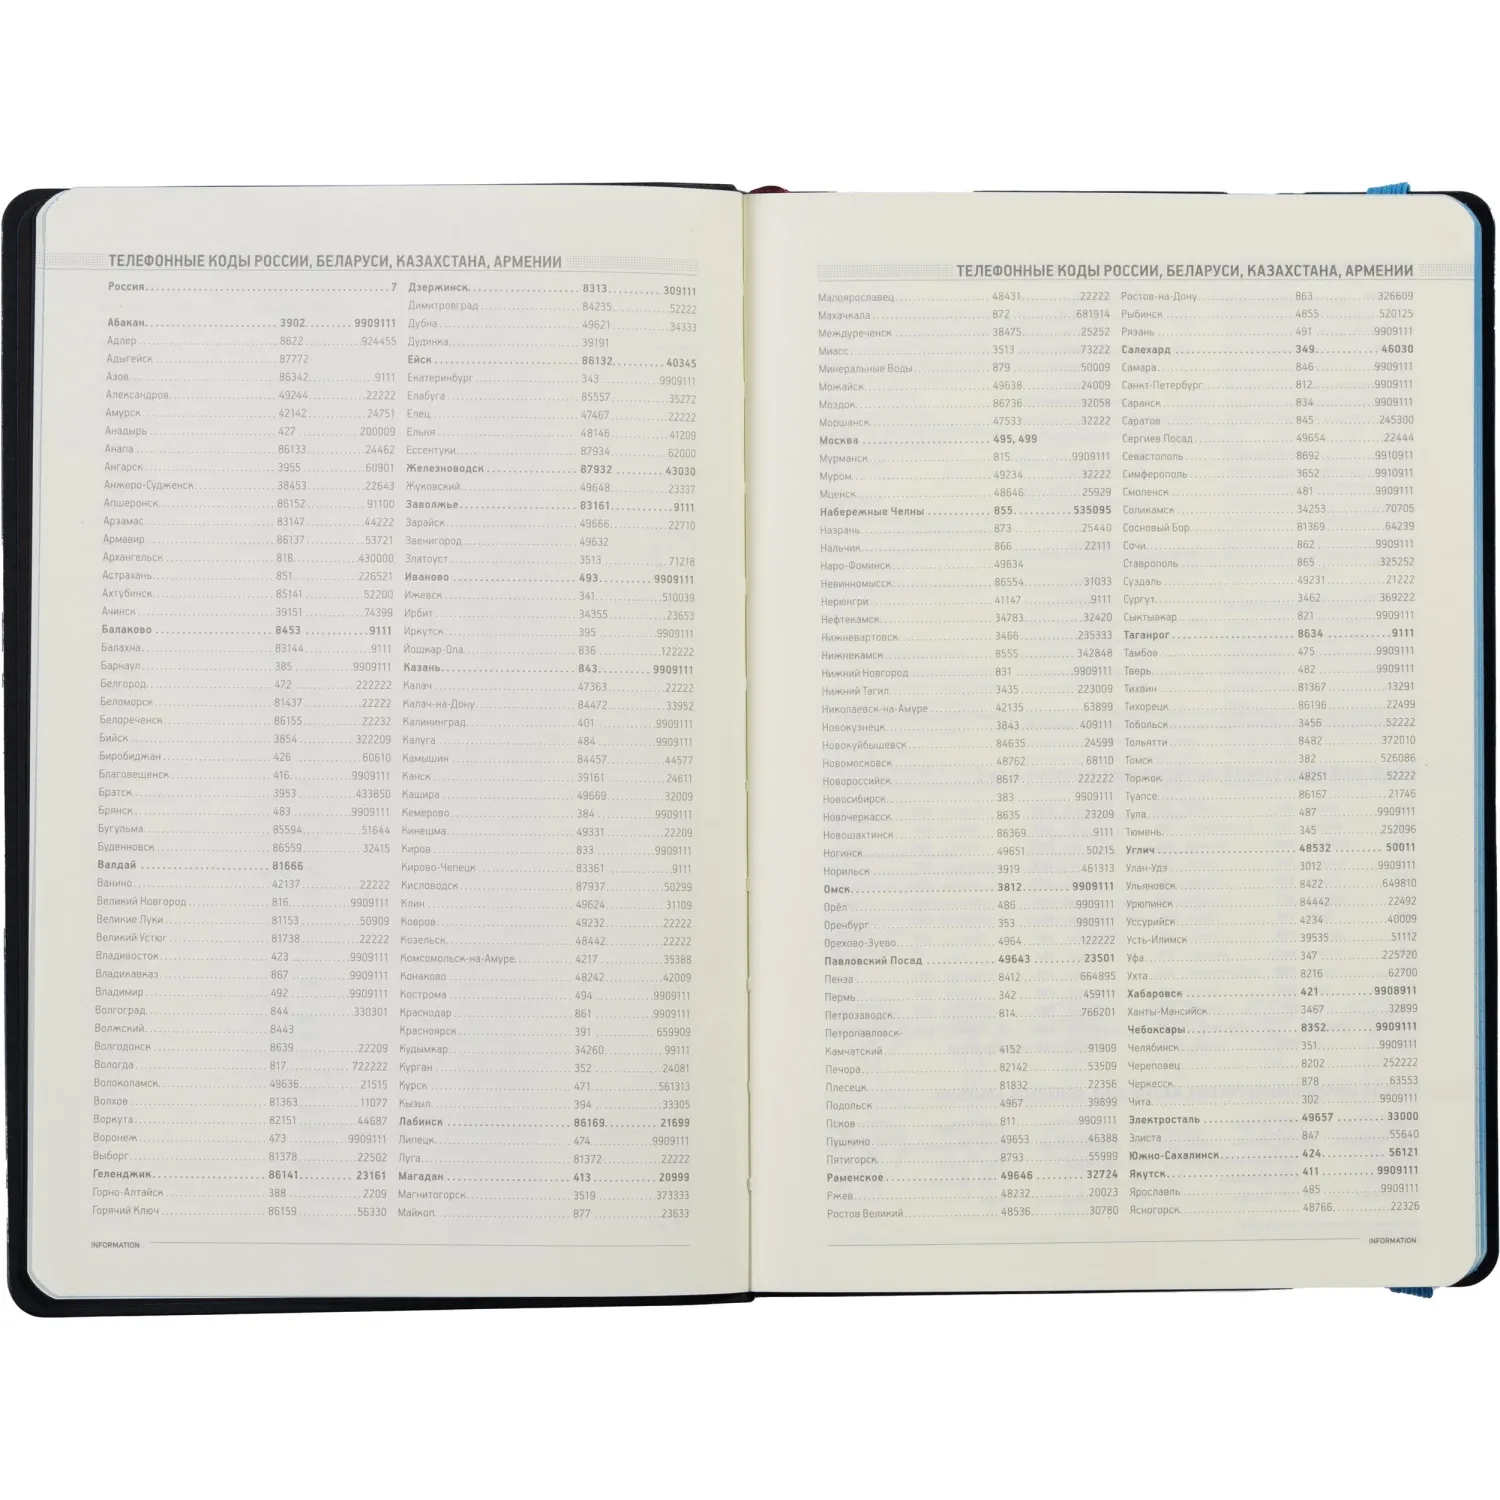 ТЕЛЕФОННЫЕ КОДЫ РОССИИ, БЕЛАРУСИ, КАЗАХСТАНА, АРМЕНИИ
Россия 7
Абакан 3902 9909111
Адлер 8622 924455
Адыгейск 87772
Азов 86342 9111
Александров 49244 22222
Амурск 42142 24751
Анадырь 427 200009
Анапа 86133 24462
Ангарск 3955 60901
Анжеро-Судженск 38453 22643
Апшеронск 86152 91100
Арзамас 83147 44222
Армавир 86137 53721
Архангельск 818 430000
Астрахань 851 226521
Ахтубинск 85141 52200
Ачинск 39151 74399
Балаково 8453 9111
Балахна 83144 9111
Барнаул 385 9909111
Белгород 472 222222
Беломорск 81437 22222
Белореченск 86155 22232
Бийск 3854 322209
Биробиджан 426 60610
Благовещенск 416 9909111
Братск 3953 433850
Брянск 483 9909111
Бугульма 85594 51644
Буденновск 86559 32415
Валдай 81666
Ванино 42137 22222
Великий Новгород 816 9909111
Великие Луки 81153 50909
Великий Устюг 81738 22222
Владивосток 423 9909111
Владикавказ 867 9909111
Владимир 492 9909111
Волгоград 844 330301
Волжский 8443
Волгодонск 8639 22209
Вологда 817 722222
Волоколамск 49636 21515
Волхов 81363 11077
Воркута 82151 44687
Воронеж 473 9909111
Выборг 81378 22502
Геленджик 86141 23161
Горно-Алтайск 388 2209
Горячий Ключ 86159 56330
Дзержинск 8313 309111
Димитровград 84235 52222
Дубна 49621 34333
Дудинка 39191
Ейск 86132 40345
Екатеринбург 343 9909111
Елабуга 85557 35272
Елец 47467 22222
Ельня 48146 41209
Ессентуки 87934 62000
Железноводск 87932 43030
Жуковский 49648 23337
Заволжье 83161 9111
Зарайск 49666 22710
Звенигород 49632
Златоуст 3513 71218
Иваново 493 9909111
Ижевск 341 510039
Ирбит 34355 23653
Иркутск 395 9909111
Йошкар-Ола 836 122222
Казань 843 9909111
Калач 47363 22222
Калач-на-Дону 84472 33952
Калининград 401 9909111
Калуга 484 9909111
Камышин 84457 44577
Канск 39161 24611
Кашира 49669 32009
Кемерово 384 9909111
Кинешма 49331 22209
Киров 833 9909111
Кирово-Чепецк 83361 9111
Кисловодск 87937 50299
Клин 49624 31109
Ковров 49232 22222
Козельск 48442 22222
Комсомольск-на-Амуре 4217 35388
Конаково 48242 42009
Кострома 494 9909111
Краснодар 861 9909111
Красноярск 391 659909
Кудымкар 34260 99111
Курган 352 24081
Курск 471 561313
Кызыл 394 33305
Лабинск 86169 21699
Липецк 474 9909111
Луга 81372 22222
Магадан 413 20999
Магнитогорск 3519 373333
Майкоп 877 23633
INFORMATION
ТЕЛЕФОННЫЕ КОДЫ РОССИИ, БЕЛАРУСИ, КАЗАХСТАНА, АРМЕНИИ
Малоярославец 48431 22222
Махачкала 872 681914
Междуреченск 38475 25252
Миасс 3513 73222
Минеральные Воды 879 50009
Можайск 49638 24009
Моздок 86736 32058
Моршанск 47533 32222
Москва 495, 499
Мурманск 815 9909111
Муром 49234 32222
Мценск 48646 25929
Набережные Челны 855 535095
Назрань 873 25440
Нальчик 866 22111
Наро-Фоминск 49634
Невинномысск 86554 31033
Нерюнгри 41147 9111
Нефтекамск 34783 32420
Нижневартовск 3466 235333
Нижнекамск 8555 342848
Нижний Новгород 831 9909111
Нижний Тагил 3435 223009
Николаевск-на-Амуре 42135 63899
Новокузнецк 3843 409111
Новокуйбышевск 84635 24599
Новомосковск 48762 68110
Новороссийск 8617 222222
Новосибирск 383 9909111
Новочеркасск 8635 23209
Новошахтинск 86369 9111
Ногинск 49651 50215
Норильск 3919 461313
Омск 3812 9909111
Орёл 486 9909111
Оренбург 353 9909111
Орехово-Зуево 4964 122222
Павловский Посад 49643 23501
Пенза 8412 664895
Пермь 342 459111
Петрозаводск 814 766201
Петропавловск-
Камчатский 4152 91909
Печора 82142 53509
Плесецк 81832 22356
Подольск 4967 39899
Псков 811 9909111
Пушкино 49653 46388
Пятигорск 8793 55999
Раменское 49646 32724
Ржев 48232 20023
Ростов Великий 48536 30780
Ростов-на-Дону 863 326609
Рыбинск 4855 520125
Рязань 491 9909111
Салехард 349 46030
Самара 846 9909111
Санкт-Петербург 812 9909111
Саранск 834 9909111
Саратов 845 245300
Сергиев Посад 49654 22444
Севастополь 8692 9910911
Симферополь 3652 9910911
Смоленск 481 9909111
Соликамск 34253 70705
Сосновый Бор 81369 64239
Сочи 862 9909111
Ставрополь 865 325252
Суздаль 49231 21222
Сургут 3462 369222
Сыктывкар 821 9909111
Таганрог 8634 9111
Тамбов 475 9909111
Тверь 482 9909111
Тихвин 81367 13291
Тихорецк 86196 22499
Тобольск 3456 52222
Тольятти 8482 372010
Томск 382 526086
Торжок 48251 52222
Туапсе 86167 21746
Тула 487 9909111
Тюмень 345 252096
Углич 48532 50011
Улан-Удэ 3012 9909111
Ульяновск 8422 649810
Урюпинск 84442 22492
Уссурийск 4234 40009
Усть-Илимск 39535 51112
Уфа 347 225720
Ухта 8216 62700
Хабаровск 421 9908911
Ханты-Мансийск 3467 32899
Чебоксары 8352 9909111
Челябинск 351 9909111
Череповец 8202 252222
Черкесск 878 63553
Чита 302 9909111
Электросталь 49657 33000
Элиста 847 55640
Южно-Сахалинск 424 56121
Якутск 411 9909111
Ярославль 485 9909111
Ясногорск 48766 22326
INFORMATION